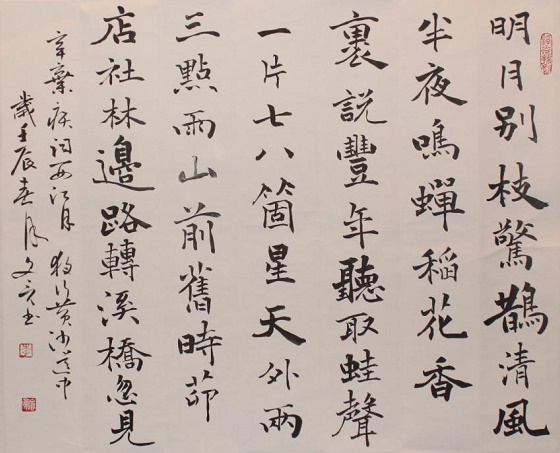 明月别枝驚鵲清風
半夜鳴蟬稻花香
裏説豐年聽取蛙聲
一片七八箇星天外兩
三點雨山前舊時茆
店社林邊路轉溪橋忽見
辛棄疾詞西江月 夜行黄沙道中
歲壬辰春月文书